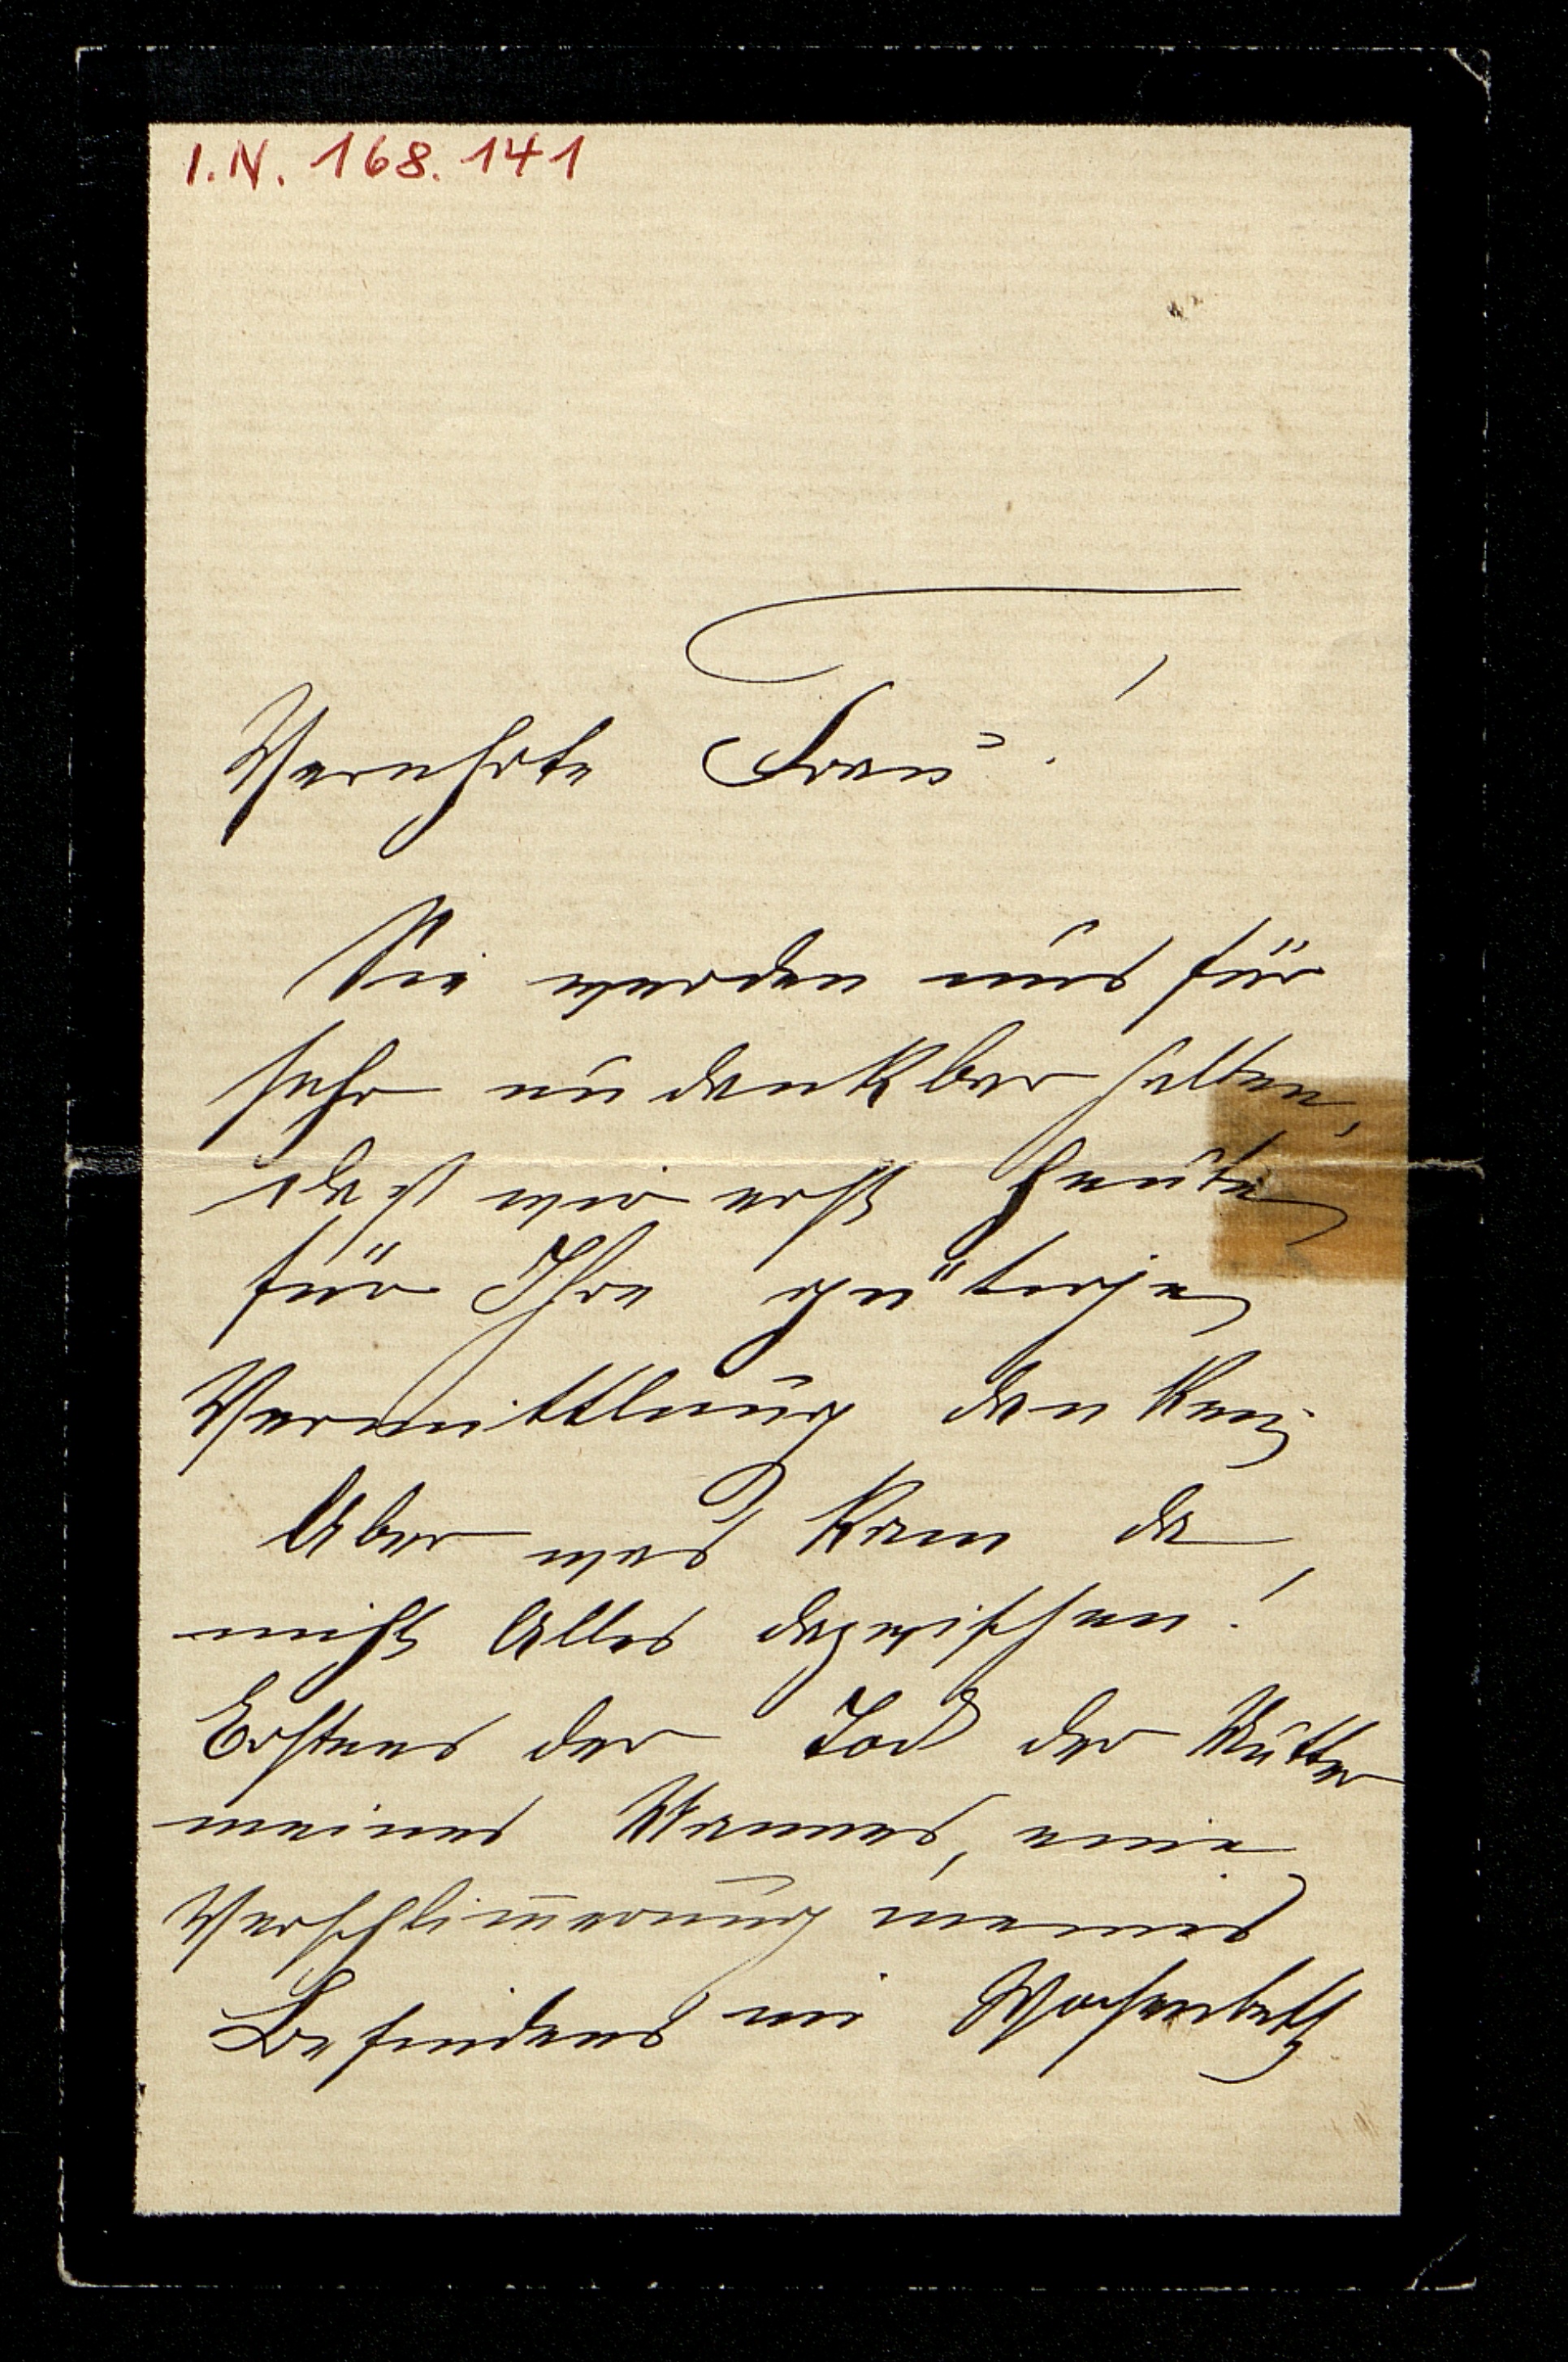 I.N. 168.141
Verehrte Frau!
Sie werden uns für
sehr undankbar halten,
daß wir erst heute
für Ihre gütige
Vermittlung danken;
Aber was kam da
nicht Alles dazwischen!
Erstens der Tod der Mutter
meines Mannes, eine
Verschlim̅erung meines
Befindens im Wochenbett